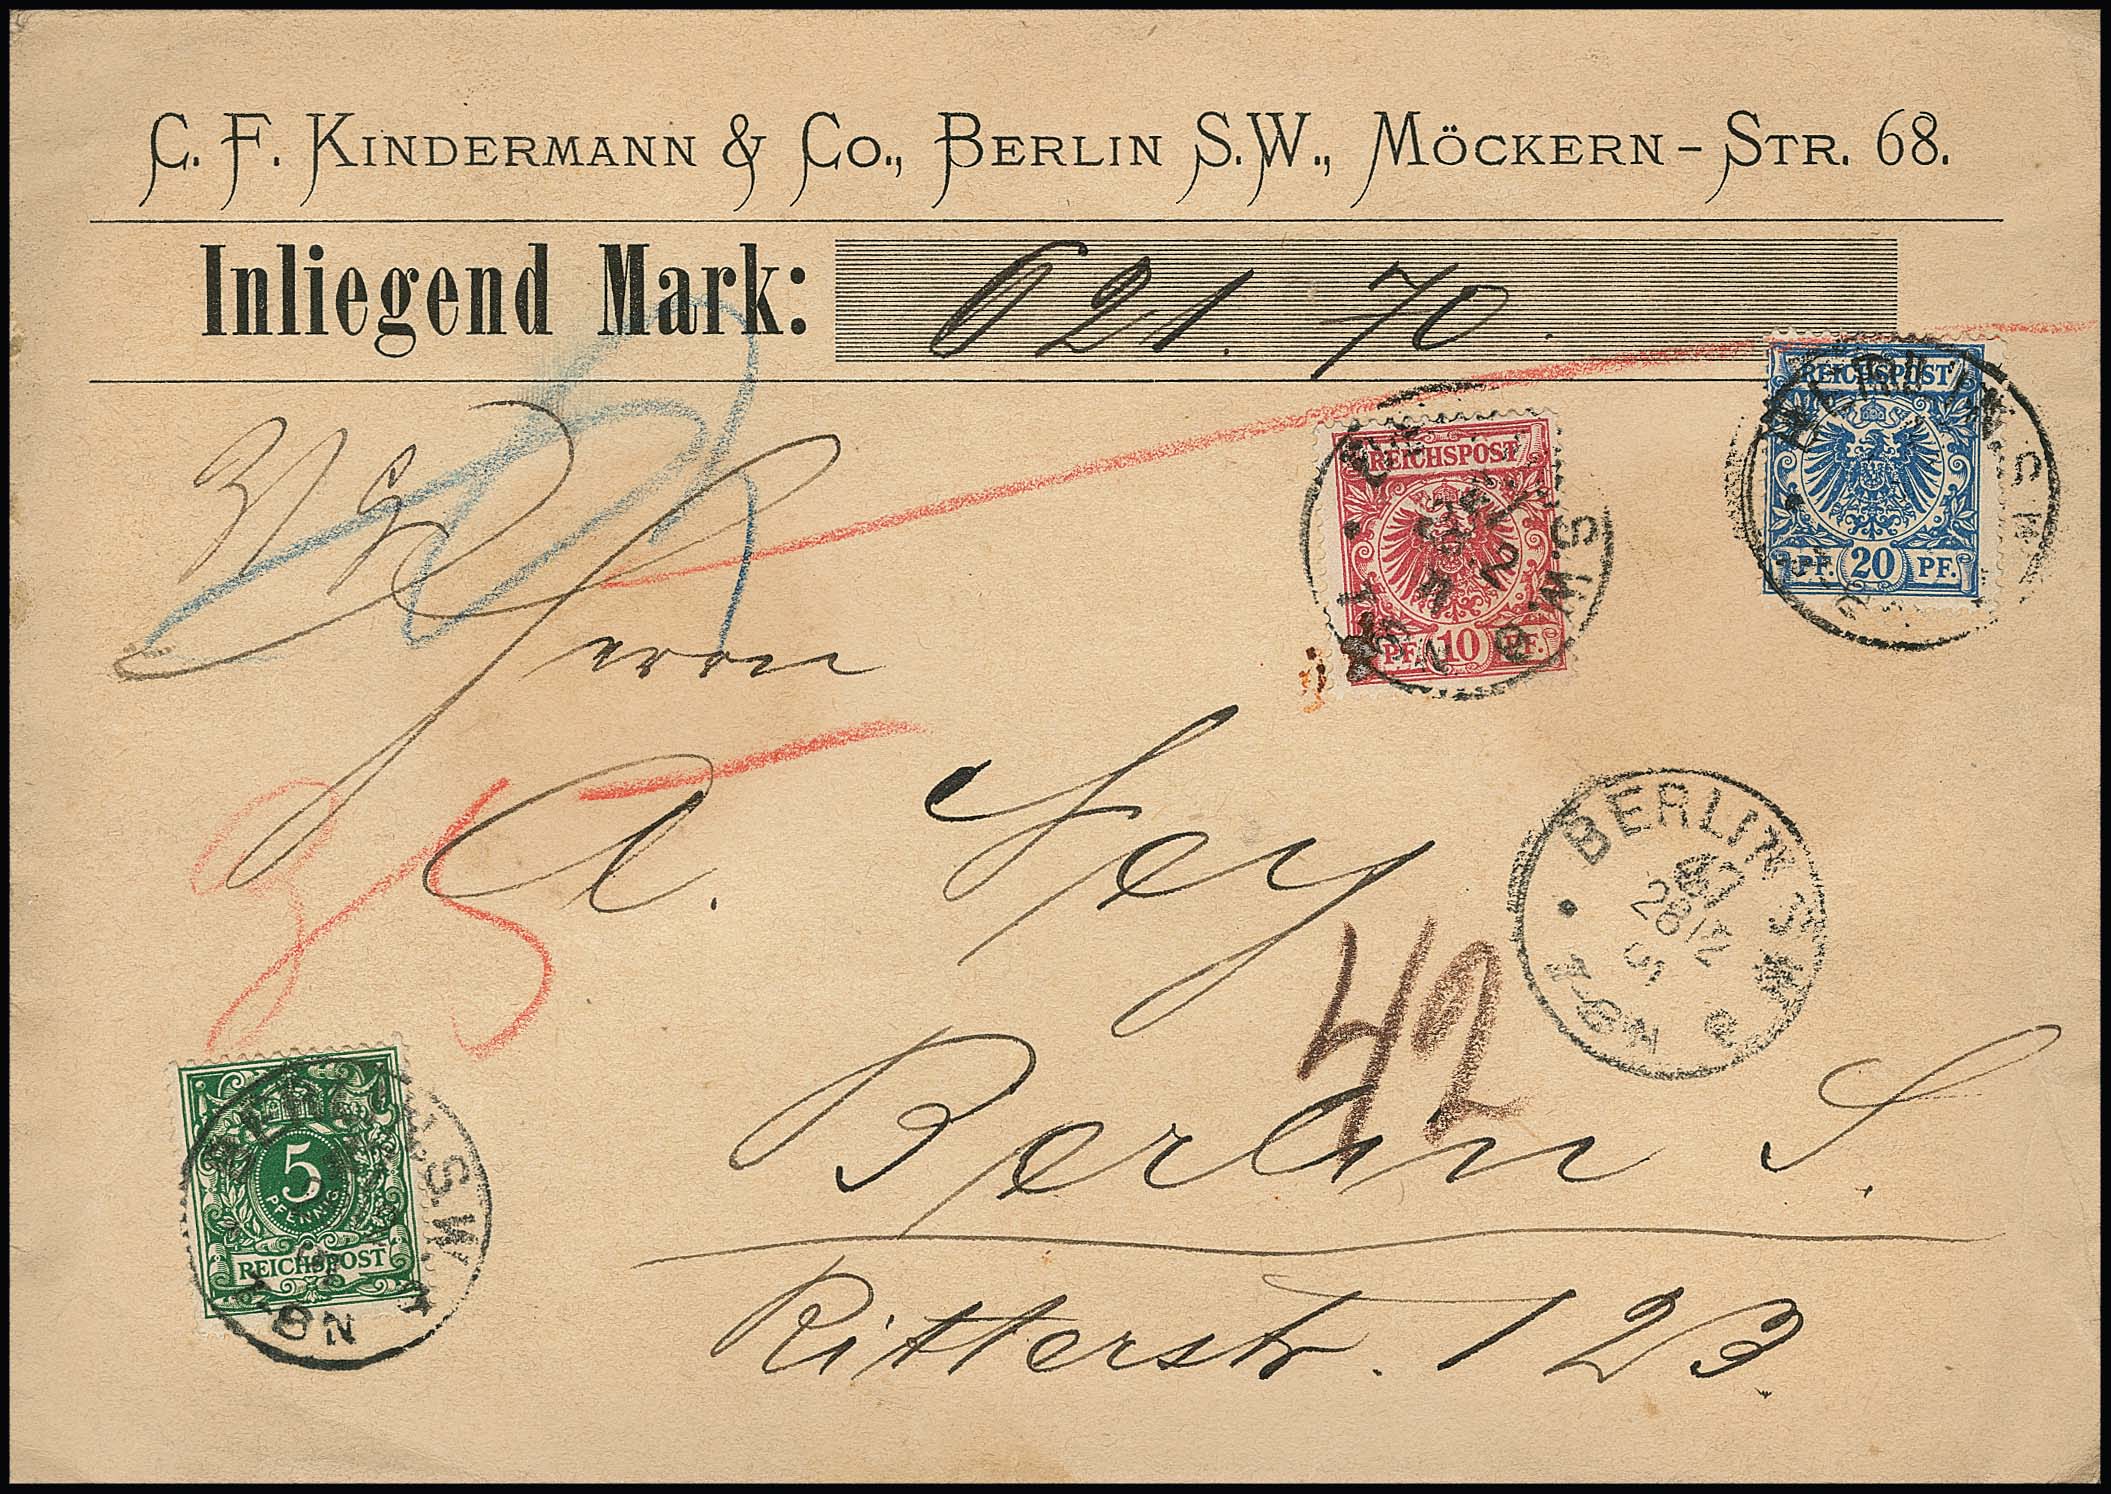 C. F. Kindermann & Co., Berlin S.W., Möckern-Str. 68.
Inliegend Mark: 621. 70.
REICHSPOST
PF. 20 PF.
REICHSPOST
PF. 10 PF.
Herrn
35
A. Hey
BERLIN S.W.
28 12
42
Berlin S.
Ritterstr. 123
5
PFENNIG
REICHSPOST
BERLIN S.W.